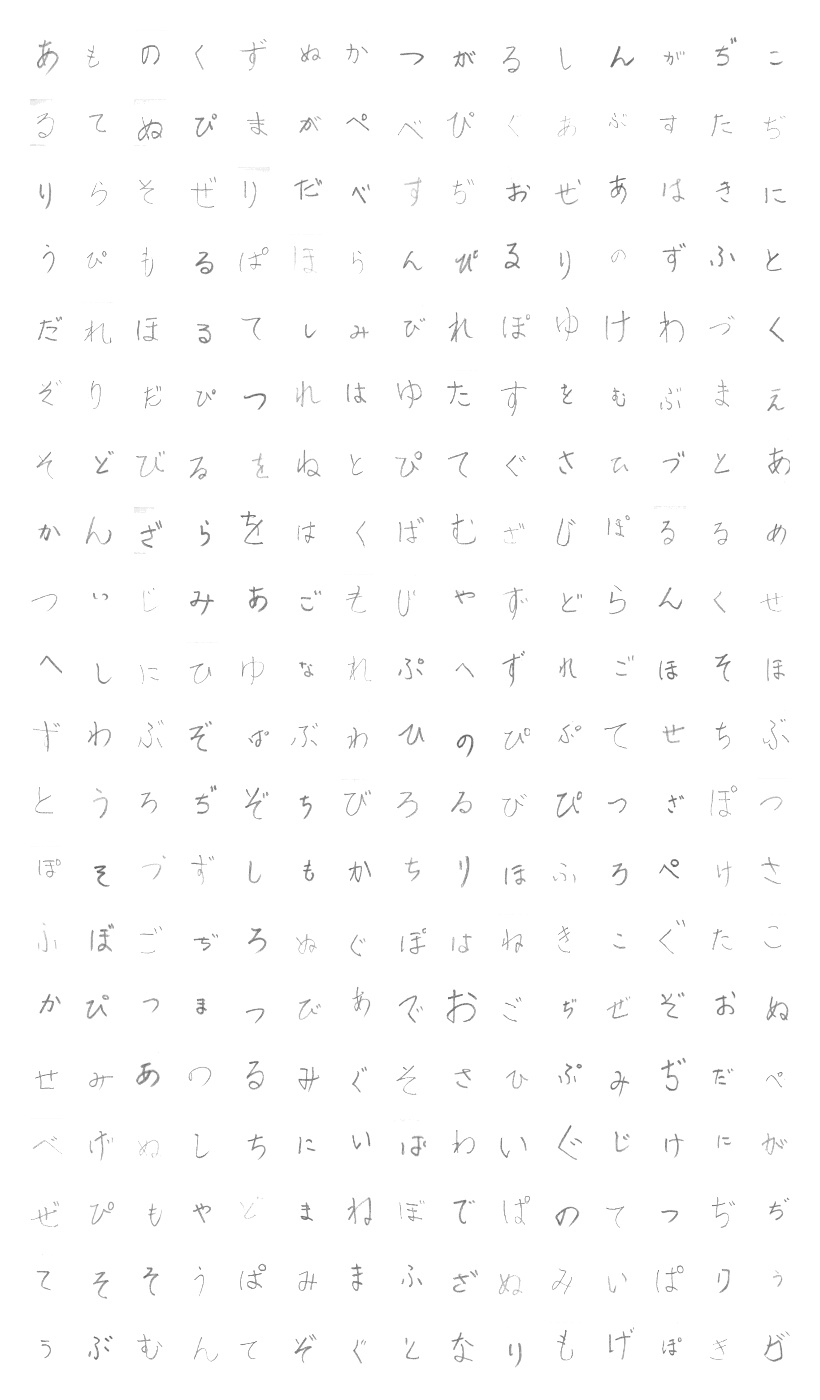 あものくずぬかつがるしんがぢこ
るてぬぴまがぺべぴぐあぶすたぢ
りらそぜりだべすぢおぜあはきに
うぴもるぱほらんぴるりのずふと
だれほるてしみびれぽゆけわづく
ぞりだぴつれはゆたすをむぶまえ
そどびるをねとぴてぐさひづとあ
かんざらをはくばむざじぽるるめ
ついじみあごもびやずどらんくせ
へしにひゆなれぷへずれごほそほ
ずわぶぞぱぶわひのぴぷてせちぶ
とうろぢぞちびろるびぴつざぽつ
ぽそづずしもかちりほふろぺけさ
ふぼごぢろぬぐぽはねきこぐたこ
かぴつまつびあでおごぢぜぞおぬ
せみあつるみぐそさひぷみぢだぺ
べげぬしちにいぼわいぐじけにが
ぜぴもやどまねぼでぱのてつぢぢ
てそそうぱみまふざぬみいぱりう
うぶむんてぞぐとなりもげぽきど